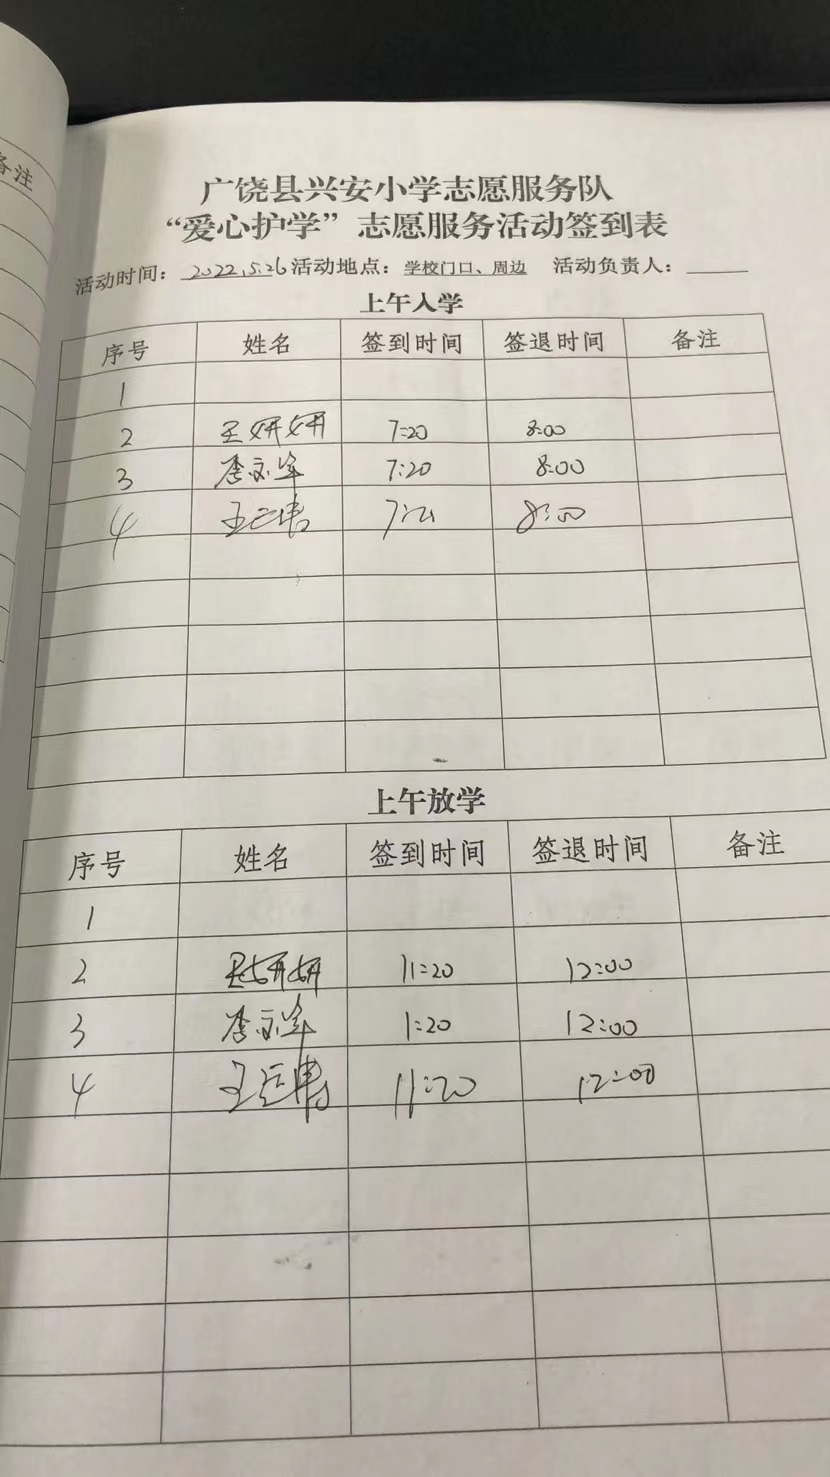 备注
广饶县兴安小学志愿服务队
“爱心护学”志愿服务活动签到表
活动时间：2022.5.26 活动地点：学校门口、周边 活动负责人：
上午入学
序号 姓名 签到时间 签退时间 备注
1
2 王妍妍 7:20 8:00
3 7:20 8:00
4 8:00
上午放学
序号 姓名 签到时间 签退时间 备注
1
2 王妍妍 11:20 12:00
3 1:20 12:00
4 11:20 12:00